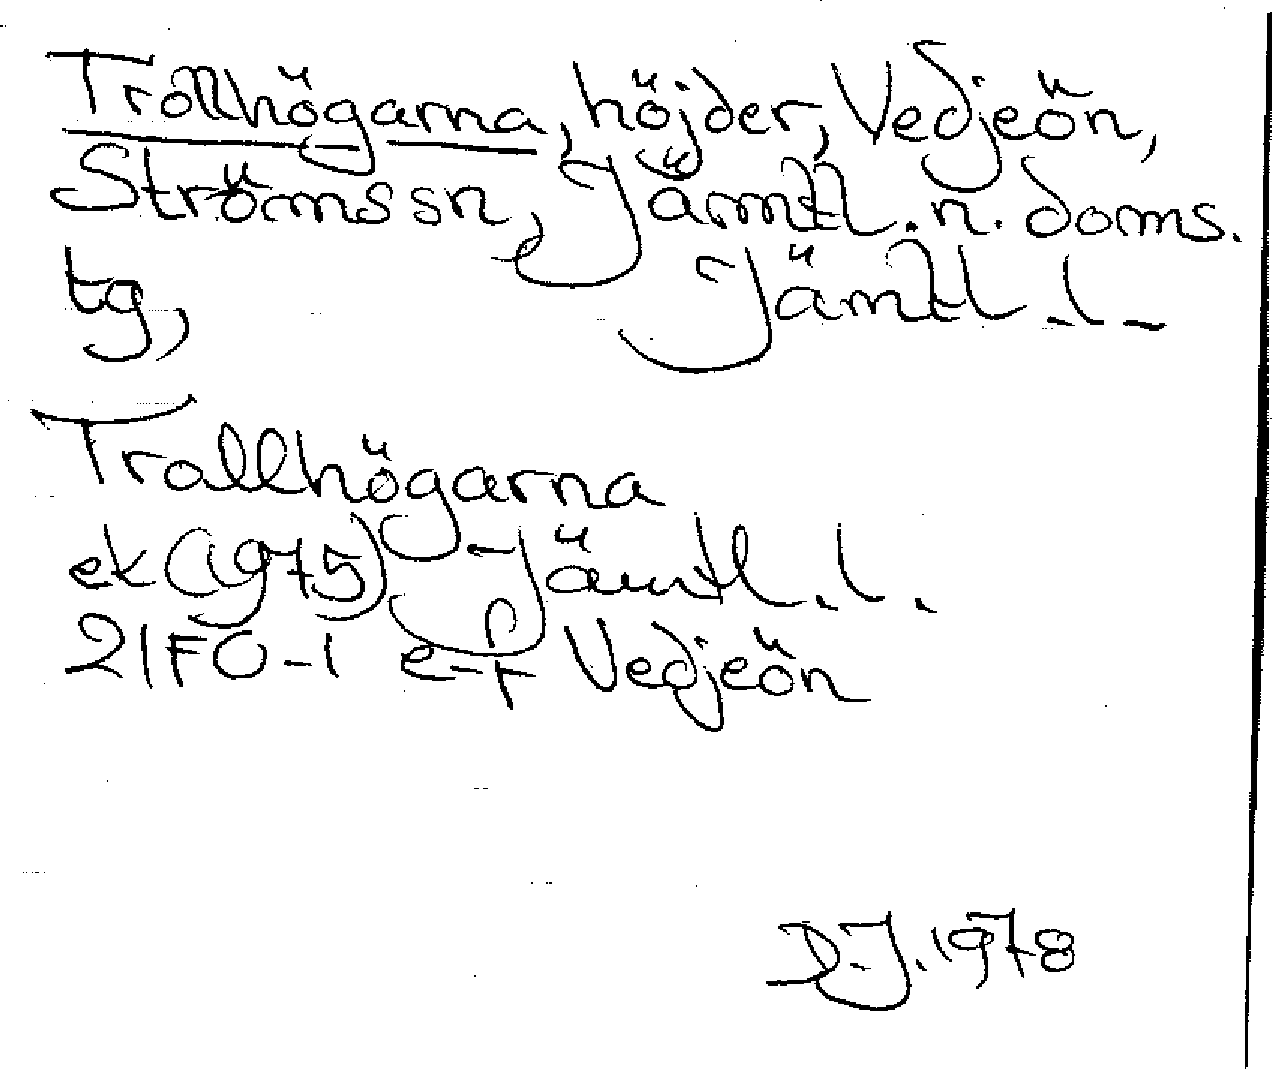 Trollhögarna, höjder, Vedjeön,
Ströms sn, Jämtl. n. doms.
tg, Jämtl. l.
Trollhögarna
ek (1975) Jämtl. l.
21FO-1 e-f Vedjeön
D.J. 1978